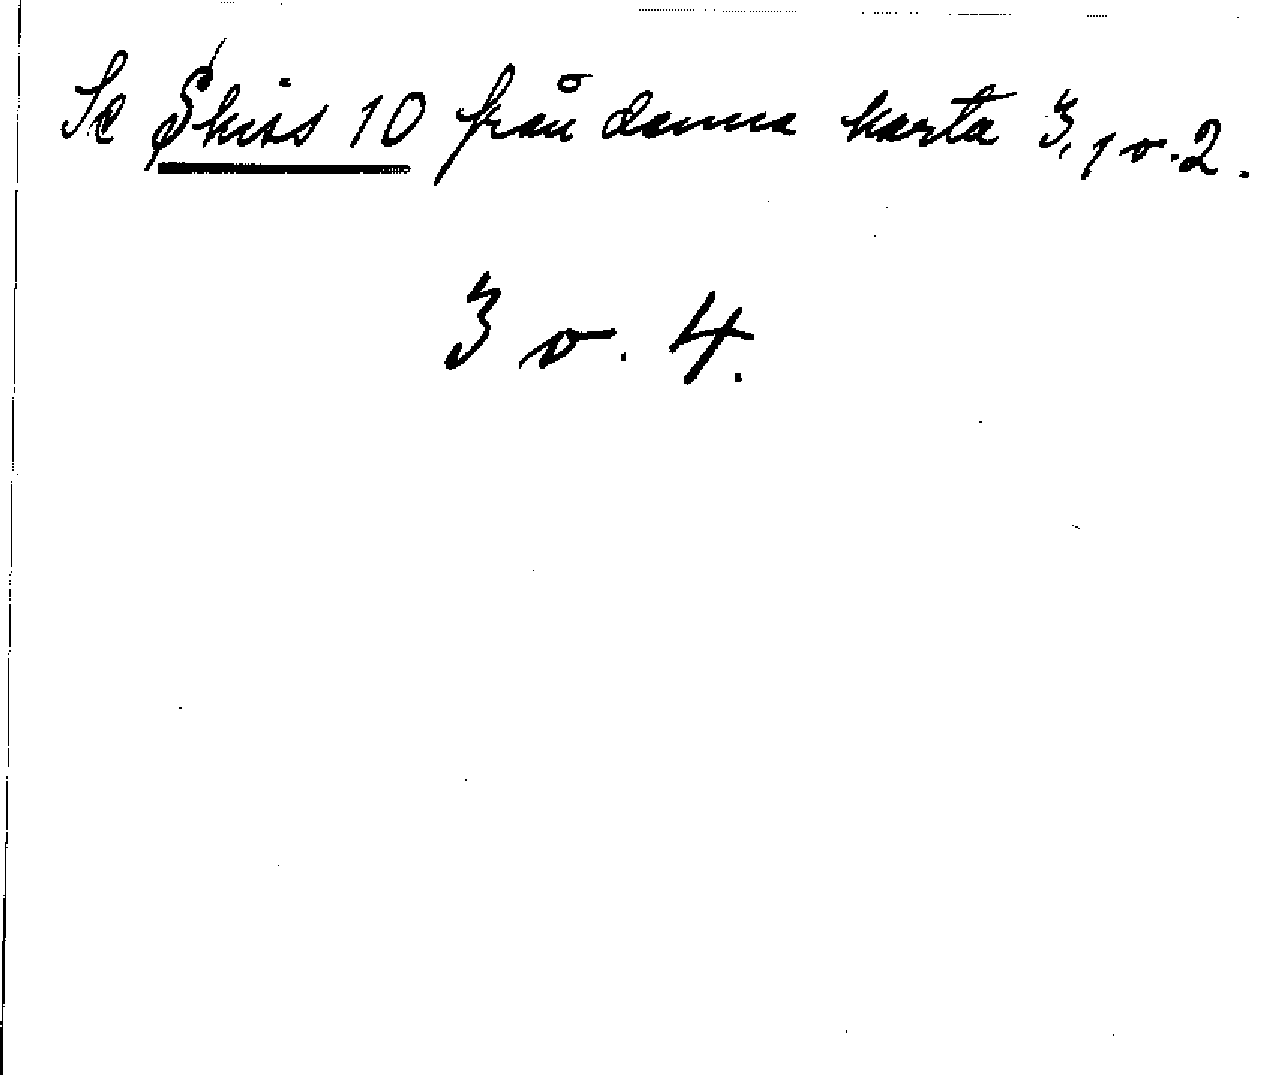 Se Skiss 10 från denna karta 3, 1 o. 2.
3 o. 4.